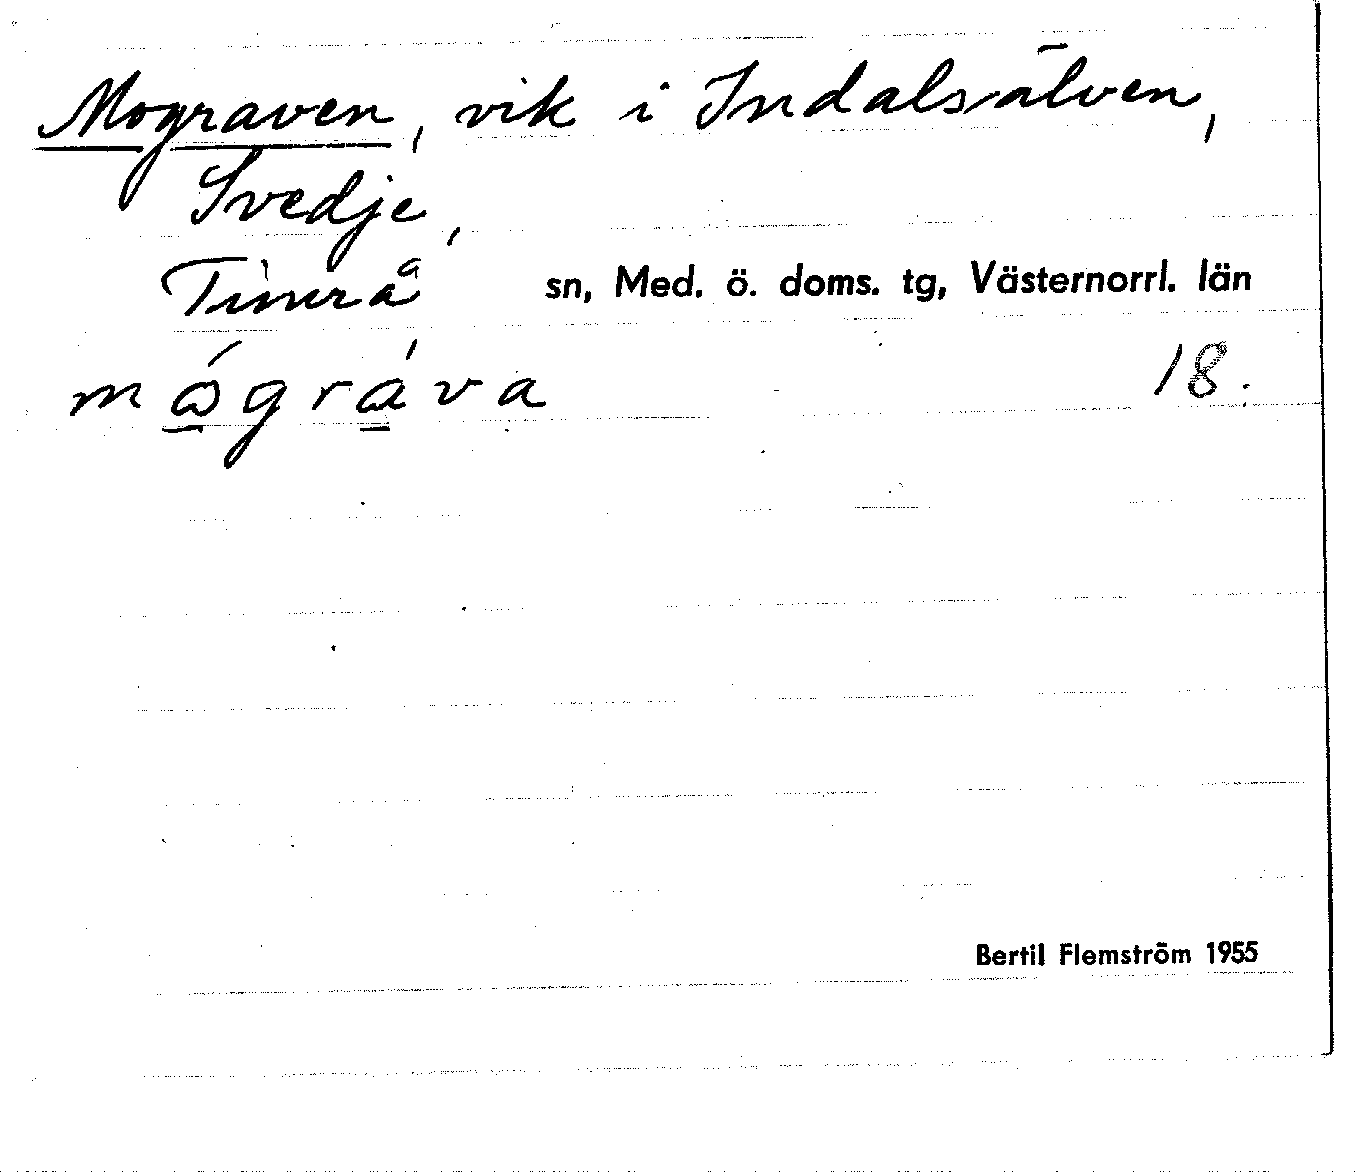 Mograven, vik i Indalsälven,
Svedje,
Timrå sn, Med. ö. doms. tg, Västernorrl. län
mǫ́gráva 18.
Bertil Flemström 1955